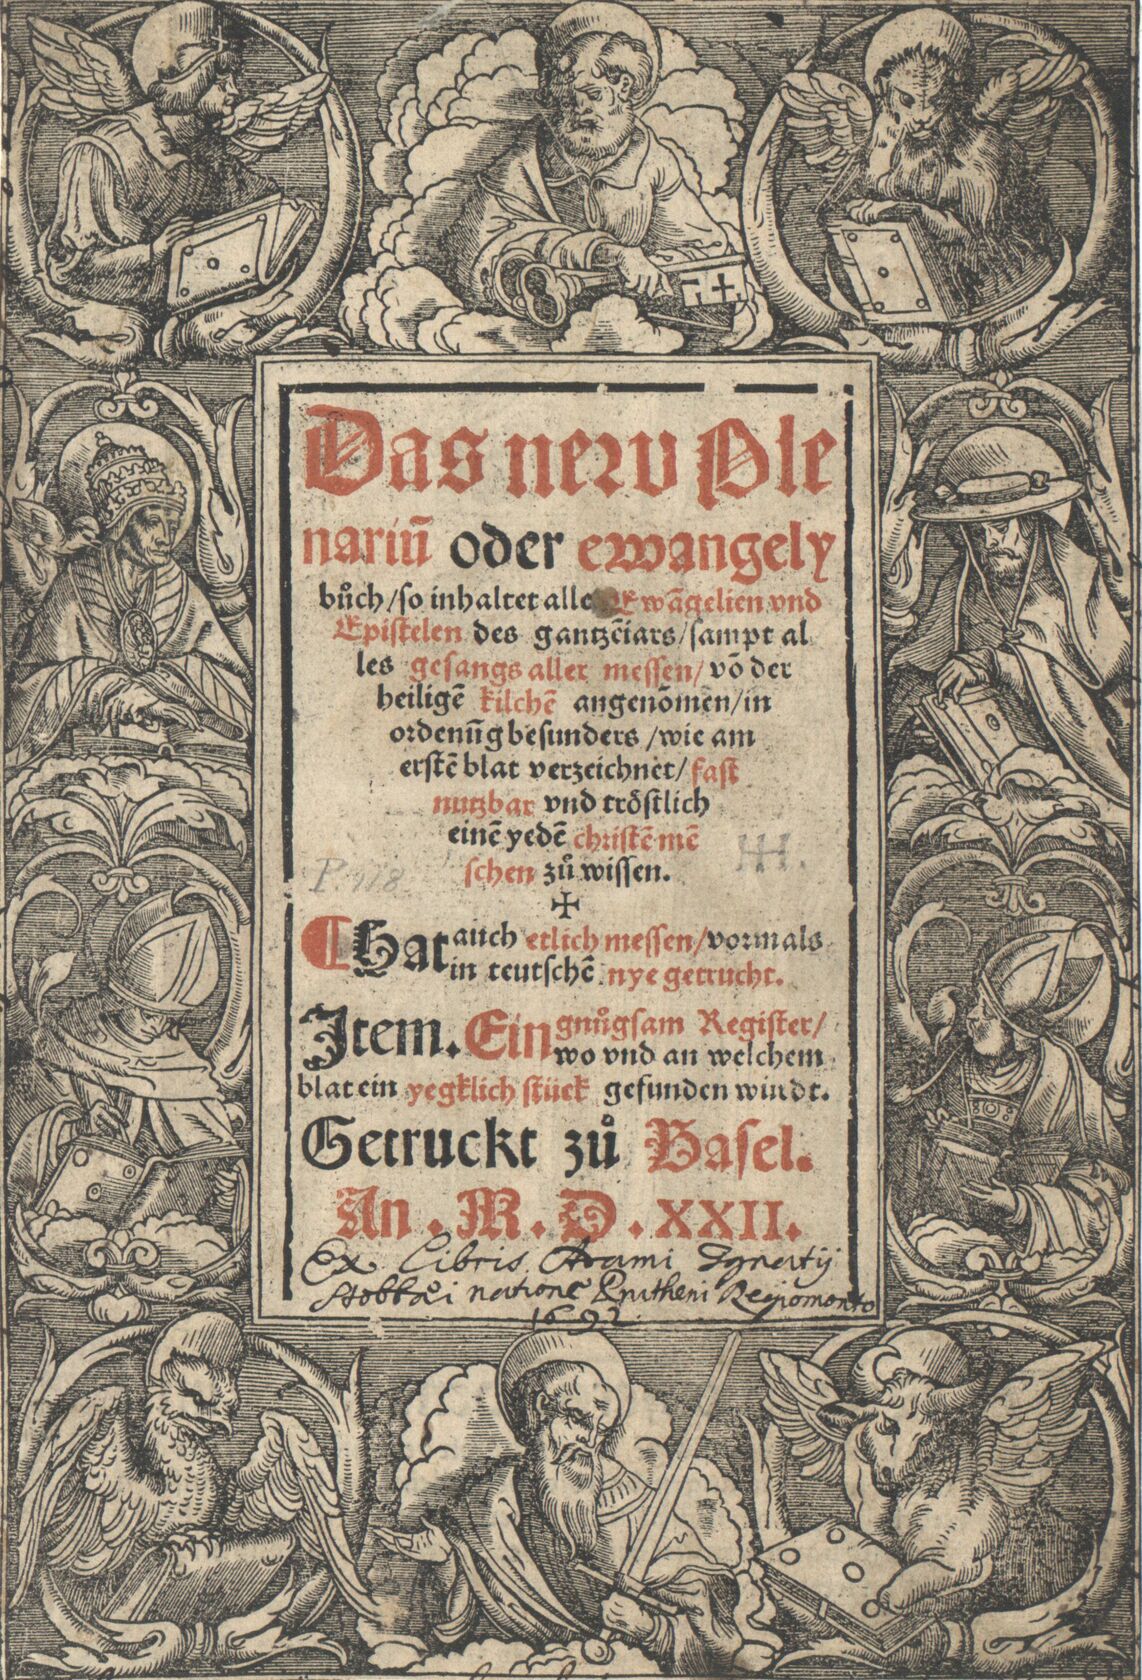 Das new Ple
nariū oder ewangely
bůch/so inhaltet alle Ewāgelien vnd
Epistelen des gantzē iars/sampt al
les gesangs aller messen/ vō der
heiligē kilchē angenōmen/in
ordenūg besunders /wie am
erstē blat verzeichnet/ fast
nutzbar vnd tröstlich
einē yedē christē mē
schen zů wissen.
P. 118
✠
¶ Hat auch etlich messen/vormals
in teutschē nye getrucht.
Item. Ein gnůgsam Register/
wo vnd an welchem
blat ein yegklich stück gefunden wirdt.
Getruckt zů Basel.
An . M . D . XXII.
Ex Libris Adami Ignatij
Stobbæi natione Prutheni Regiomonto
1692